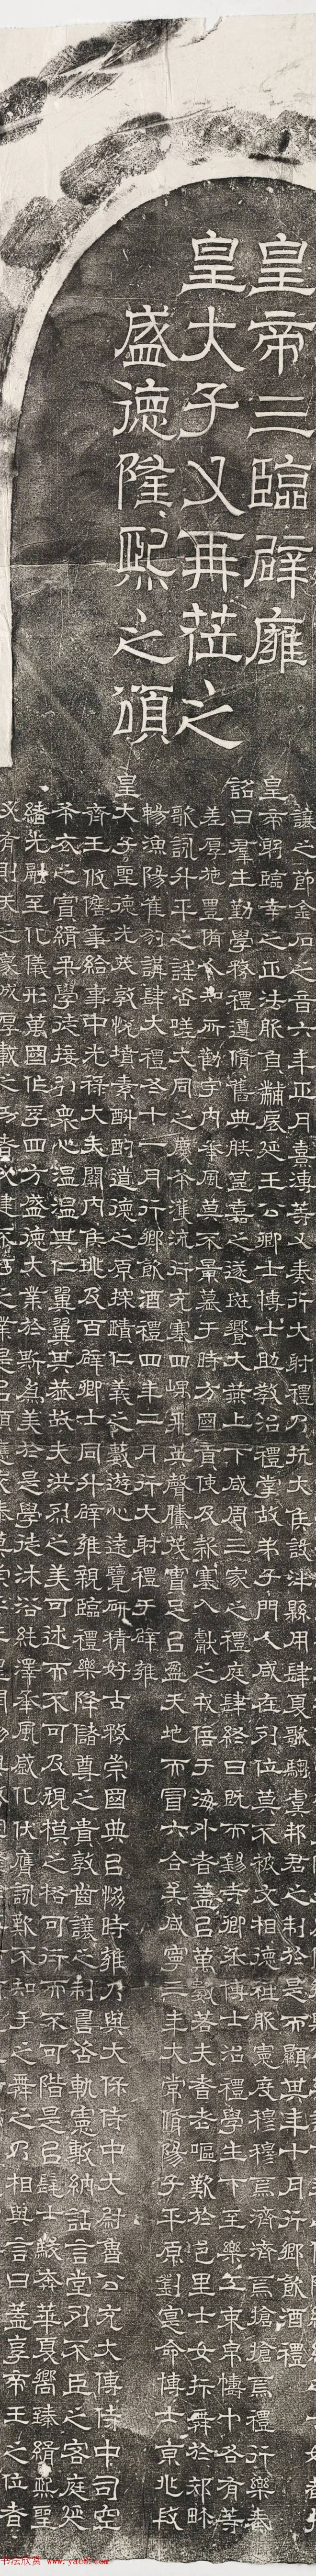 皇帝三臨辟雍
皇大子又再莅之
盛德隆熙之頌
讓之節金石之音六年正月熹溥等又奏行大射禮乃抗大侯設泮縣用肆夏歌騶虞邦君之制於是而顯其年十月行鄉飲酒禮
皇帝躬臨幸之正法服負黼扆延王公卿士博士助敎治禮掌故弟子門人咸在列位莫不被文相德祖服憲度穆穆焉濟濟焉搶搶焉禮行樂奏
詔曰羣生勤學務禮遵脩舊典朕甚嘉之遂班饗大燕上下咸周三家之禮庭肆終日既而錫寺卿丞博士治禮學生下至樂工束帛幬巾各有等
差厚施豐備人知所勸宇內承風莫不景慕于時方國貢使及款塞入獻之戎倍于海外者蓋以萬數若夫耆老嘔歎於邑里士女抃舞於郊畛
歌詠升平之謠咨嗟大同之慶布濩流衍充塞四嵎飛英聲騰茂實足以盈天地而冒六合矣咸寧三年大常脩陽子平原劉寔命博士京兆段
暢漁陽崔豹講肆大禮冬十一月行鄉飲酒禮四年二月行大射禮于辟雍
皇大子聖德光茂敦悅墳素斟酌道德之原探賾仁義之藪遊心遠覽研精好古務崇國典以協時雍乃與大保侍中大尉魯公充大傅侍中司空
齊王攸詹事給事中光祿大夫關內侯珧及百辟卿士同升辟雍親臨禮樂降儲尊之貴敦齒讓之制疇咨軌憲敷納話言堂列不臣之客庭延
布衣之賓緝柔學徒接引衆心溫溫其仁翼翼其恭故夫洪烈之美可述而不可及規模之格可行而不可階是以髦士駿奔華夏嚮臻緝熙聖
緒光闡至化儀形萬國作孚四方盛德大業於斯爲美於是學徒沐浴純澤承風感化伏膺詠歎不知手之舞之乃相與言曰蓋享帝王之位者
书法欣赏 www.yac8.com